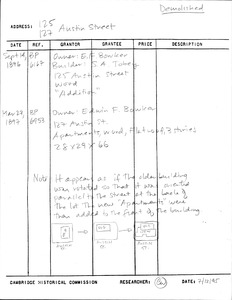 Demolished
ADDRESS: 125
127 Austin Street
DATE REF. GRANTOR GRANTEE PRICE DESCRIPTION
Sept 14, BP Owner: E.F Bowker
1896 6167 Builder: S A Tobey
125 Austin Street
Wood
"Addition"
Mar 27, BP Owner Edwin F. Bowker
1897 6453 127 Austin St.
Apartments, wood, Flat roof, 3 stories
28 x 29 x 66
Note: It appears as if the older building
was rotated so that it was oriented
parallel to the street at the back of
the lot. The new "Apartments" were
then added to the front of the building
CAMBRIDGE HISTORICAL COMMISSION RESEARCHER: DATE: 7/12/95